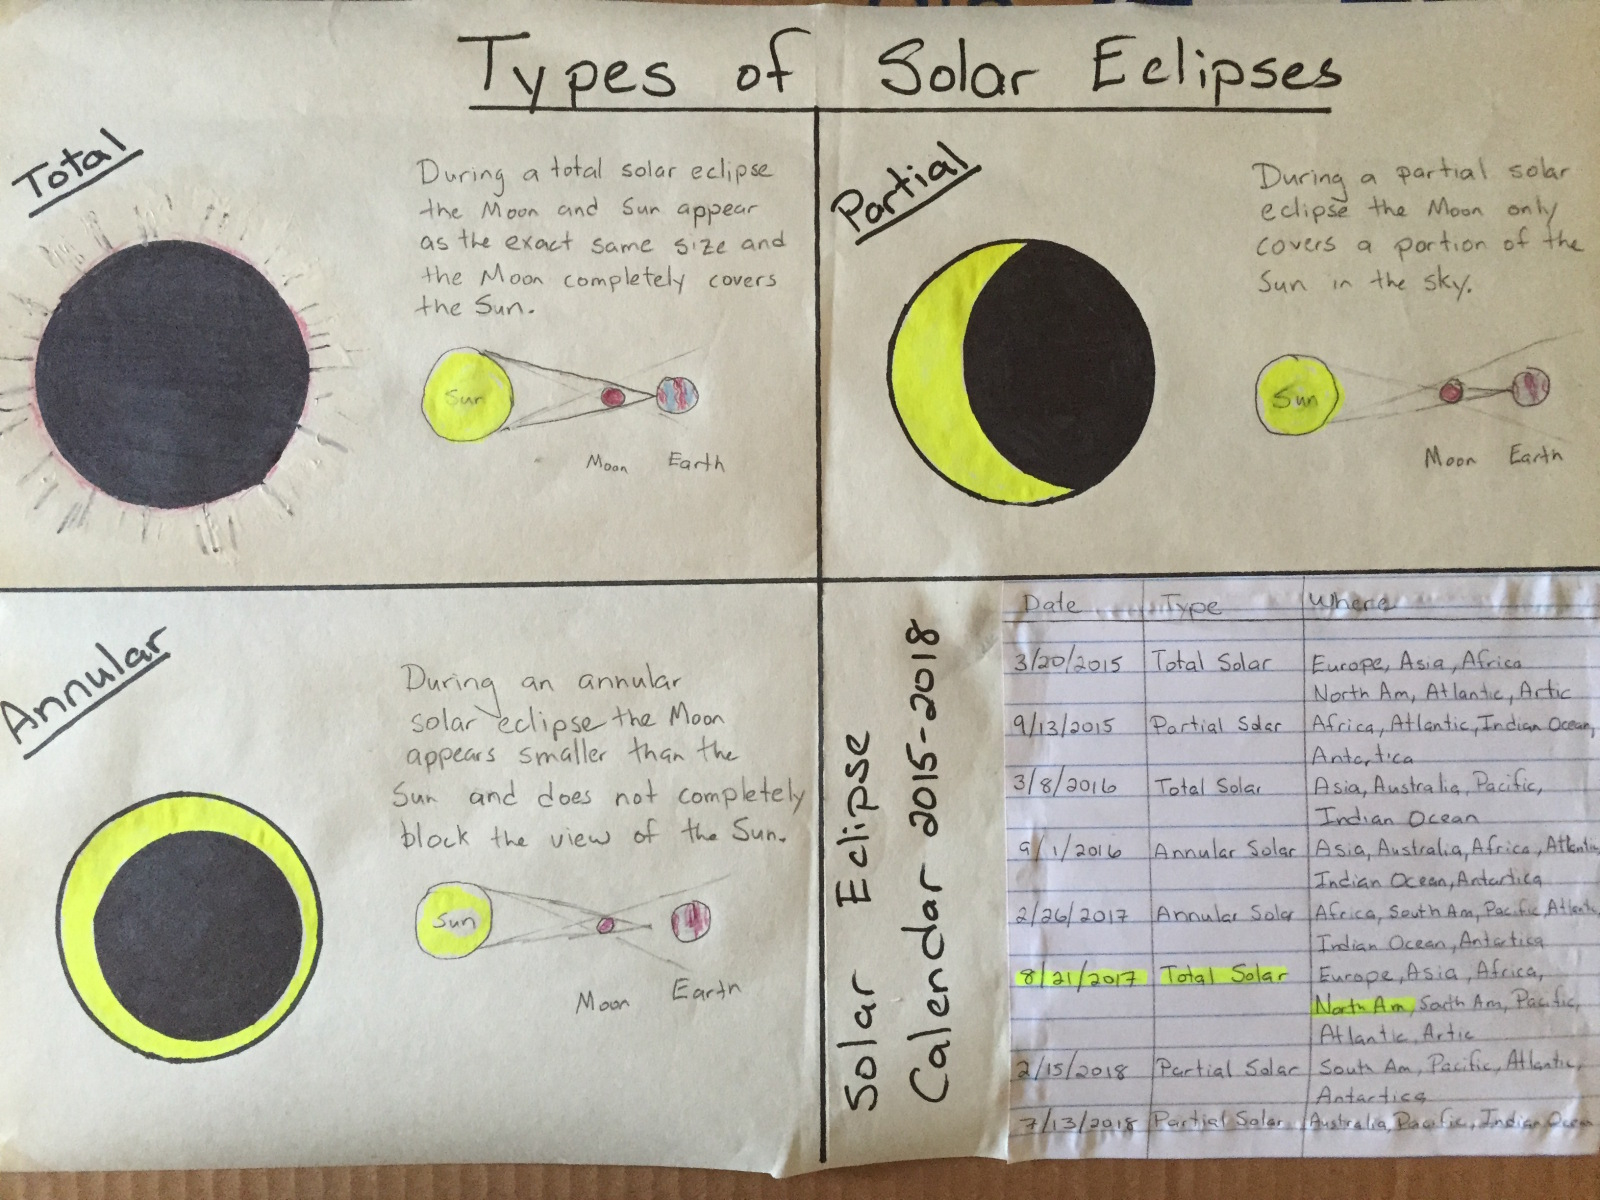 Types of Solar Eclipses
Total
During a total solar eclipse
the Moon and Sun appear
as the exact same size and
the Moon completely covers
the Sun.
Sun
Moon Earth
Partial
During a partial solar
eclipse the Moon only
covers a portion of the
Sun in the sky.
Sun
Moon Earth
Annular
During an annular
solar eclipse the Moon
appears smaller than the
Sun and does not completely
block the view of the Sun.
Sun
Moon Earth
Solar Eclipse
Calendar 2015-2018
Date Type Where
3/20/2015 Total Solar Europe, Asia, Africa
North Am, Atlantic, Artic
9/13/2015 Partial Solar Africa, Atlantic, Indian Ocean,
Antartica
3/8/2016 Total Solar Asia, Australia, Pacific,
Indian Ocean
9/1/2016 Annular Solar Asia, Australia, Africa, Atlantic,
Indian Ocean, Antartica
2/26/2017 Annular Solar Africa, South Am, Pacific, Atlantic,
Indian Ocean, Antartica
8/21/2017 Total Solar Europe, Asia, Africa,
North Am, South Am, Pacific,
Atlantic, Artic
2/15/2018 Partial Solar South Am, Pacific, Atlantic,
Antartica
7/13/2018 Partial Solar Australia, Pacific, Indian Ocean